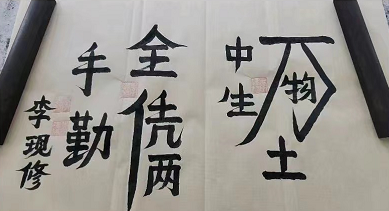 万物土
中生
全凭两
手勤
李现修